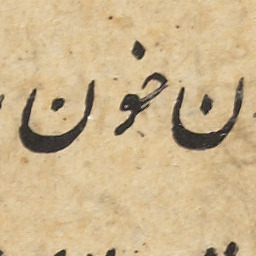 ن خون